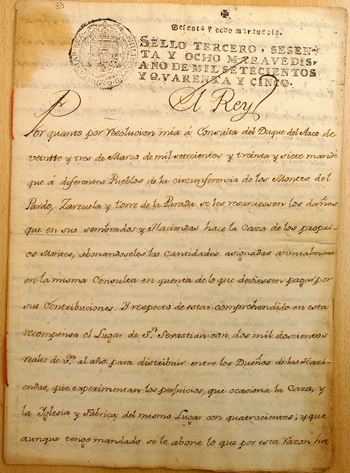 Sesenta y ocho maravedis.
SELLO TERCERO, SESEN-
TA Y OCHO MARAVEDIS,
AÑO DE MIL SETECIENTOS
Y QVARENTA Y CINCO.
El Rey
Por quanto por resolucion mia á Consulta del Duque del Arco de
veinte y tres de Marzo de mil setecientos y treinta y siete mandé
que á diferentes Pueblos de la circunferencia de los Montes, del
Pardo, Zarzuela y torre de la Parada se les resarciesen los daños
que en sus sembrados y Haciendas hace la Caza de los propri-
os Montes, abonandoseles las Cantidades asignadas annualmente
en la misma Consulta en quenta de lo que deviesen pagar por
sus Contribuciones. Y respecto de estar comprehendido en esta
recompensa el Lugar de Sn. Sebastian con dos mil doscientos
reales de Vn. al año, para distribuir entre los Dueños de las Hazi-
endas, que experimentan los perjuicios, que ocasiona la Caza, y
la Iglesia y Fabrica del mismo Lugar con quatrocientos; y que
aunque tengo mandado se le abone lo que por esta razon ha